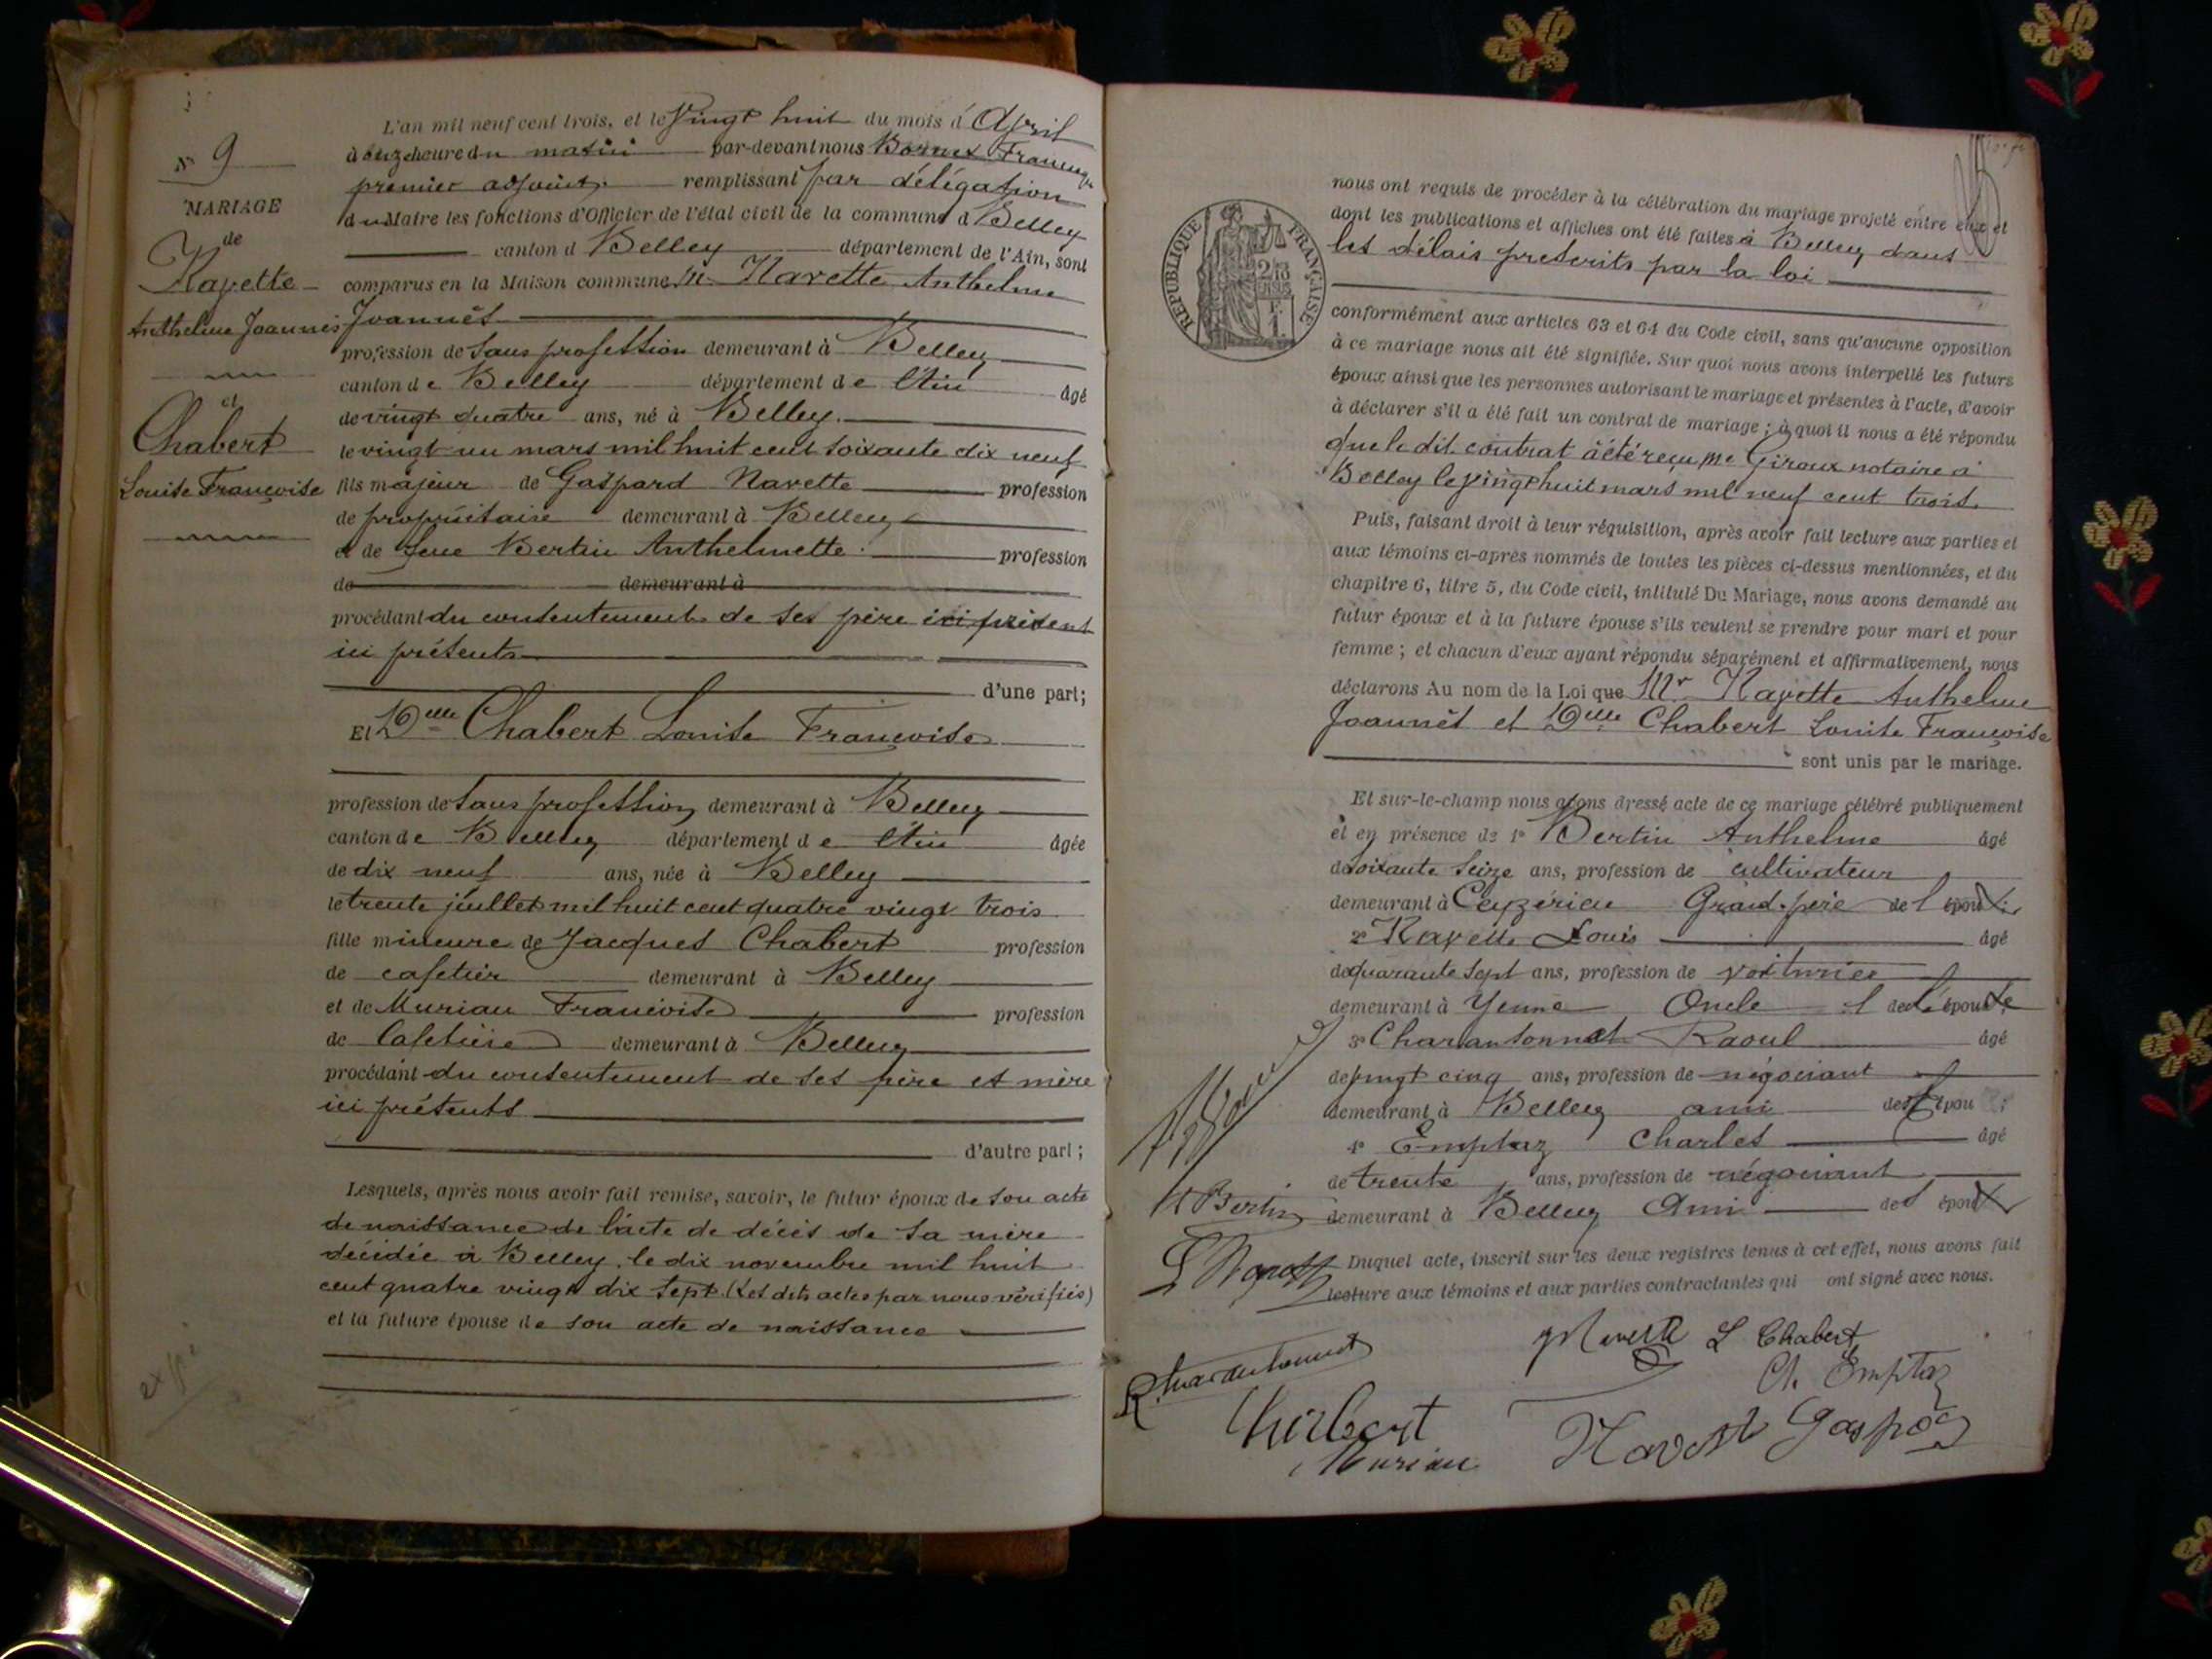 L'an mil neuf cent trois, et le Vingt huit du mois d'Avril
à onze heure du matin par-devant nous Bornex François
premier adjoint remplissant par délégation
du Maire les fonctions d'Officier de l'état civil de la commune d Belley
canton d Belley département de l'Ain, sont
comparus en la Maison commune Mr Navette Anthelme
Joannès
profession de Sans profession demeurant à Belley
canton de Belley département de l'Ain âgé
de vingt quatre ans, né à Belley
le vingt un mars mil huit cent soixante dix neuf
fils majeur de Gaspard Navette profession
de propriétaire demeurant à Belley
et de feue Bertin Anthelmette profession
de demeurant à
procédant du consentement de ses père ici présent
ici présents
d'une part;
Et Delle Chabert Louise Françoise
profession de Sans profession demeurant à Belley
canton de Belley département de l'Ain âgée
de dix neuf ans, née à Belley
le trente juillet mil huit cent quatre vingt trois
fille mineure de Jacques Chabert profession
de cafetier demeurant à Belley
et de Murian Françoise profession
de Cafetière demeurant à Belley
procédant du consentement de ses père et mère
ici présents
d'autre part;
Lesquels, après nous avoir fait remise, savoir, le futur époux de son acte
de naissance de l'acte de décès de sa mère
décédée à Belley, le dix novembre mil huit
cent quatre vingt dix sept (Les dits actes par nous vérifiés)
et la future épouse de son acte de naissance
No 9
MARIAGE
de
Navette
Anthelme Joannès
et
Chabert
Louise Françoise
RÉPUBLIQUE FRANÇAISE
nous ont requis de procéder à la célébration du mariage projeté entre eux et
dont les publications et affiches ont été faites à Belley dans
les délais prescrits par la loi
conformément aux articles 63 et 64 du Code civil, sans qu'aucune opposition
à ce mariage nous ait été signifiée. Sur quoi nous avons interpellé les futurs
époux ainsi que les personnes autorisant le mariage et présentes à l'acte, d'avoir
à déclarer s'il a été fait un contrat de mariage; à quoi il nous a été répondu
que le dit contrat a été reçu Me Giroux notaire à
Belley le vingt huit mars mil neuf cent trois
Puis, faisant droit à leur réquisition, après avoir fait lecture aux parties et
aux témoins ci-après nommés de toutes les pièces ci-dessus mentionnées, et du
chapitre 6, titre 5, du Code civil, intitulé Du Mariage, nous avons demandé au
futur époux et à la future épouse s'ils veulent se prendre pour mari et pour
femme; et chacun d'eux ayant répondu séparément et affirmativement, nous
déclarons Au nom de la Loi que Mr Navette Anthelme
Joannès et Delle Chabert Louise Françoise
sont unis par le mariage.
Et sur-le-champ nous avons dressé acte de ce mariage célébré publiquement
et en présence de 1º Bertin Anthelme âgé
de soixante seize ans, profession de cultivateur
demeurant à Ceyzérieu Grand-père de l'époux;
2º Navette Louis âgé
de quarante sept ans, profession de voiturier
demeurant à Yenne Oncle de l'épouse
3º Charantonnet Raoul âgé
de vingt cinq ans, profession de négociant
demeurant à Belley ami des épou ;
4º Emptaz Charles âgé
de trente ans, profession de négociant
demeurant à Belley Ami de l'époux
Duquel acte, inscrit sur les deux registres tenus à cet effet, nous avons fait
lecture aux témoins et aux parties contractantes qui ont signé avec nous.
A Bertin
L Navette
R. Charantonnet
Navette L Chabert
Ch. Emptaz
Chabert
Murian
Navette Gaspard